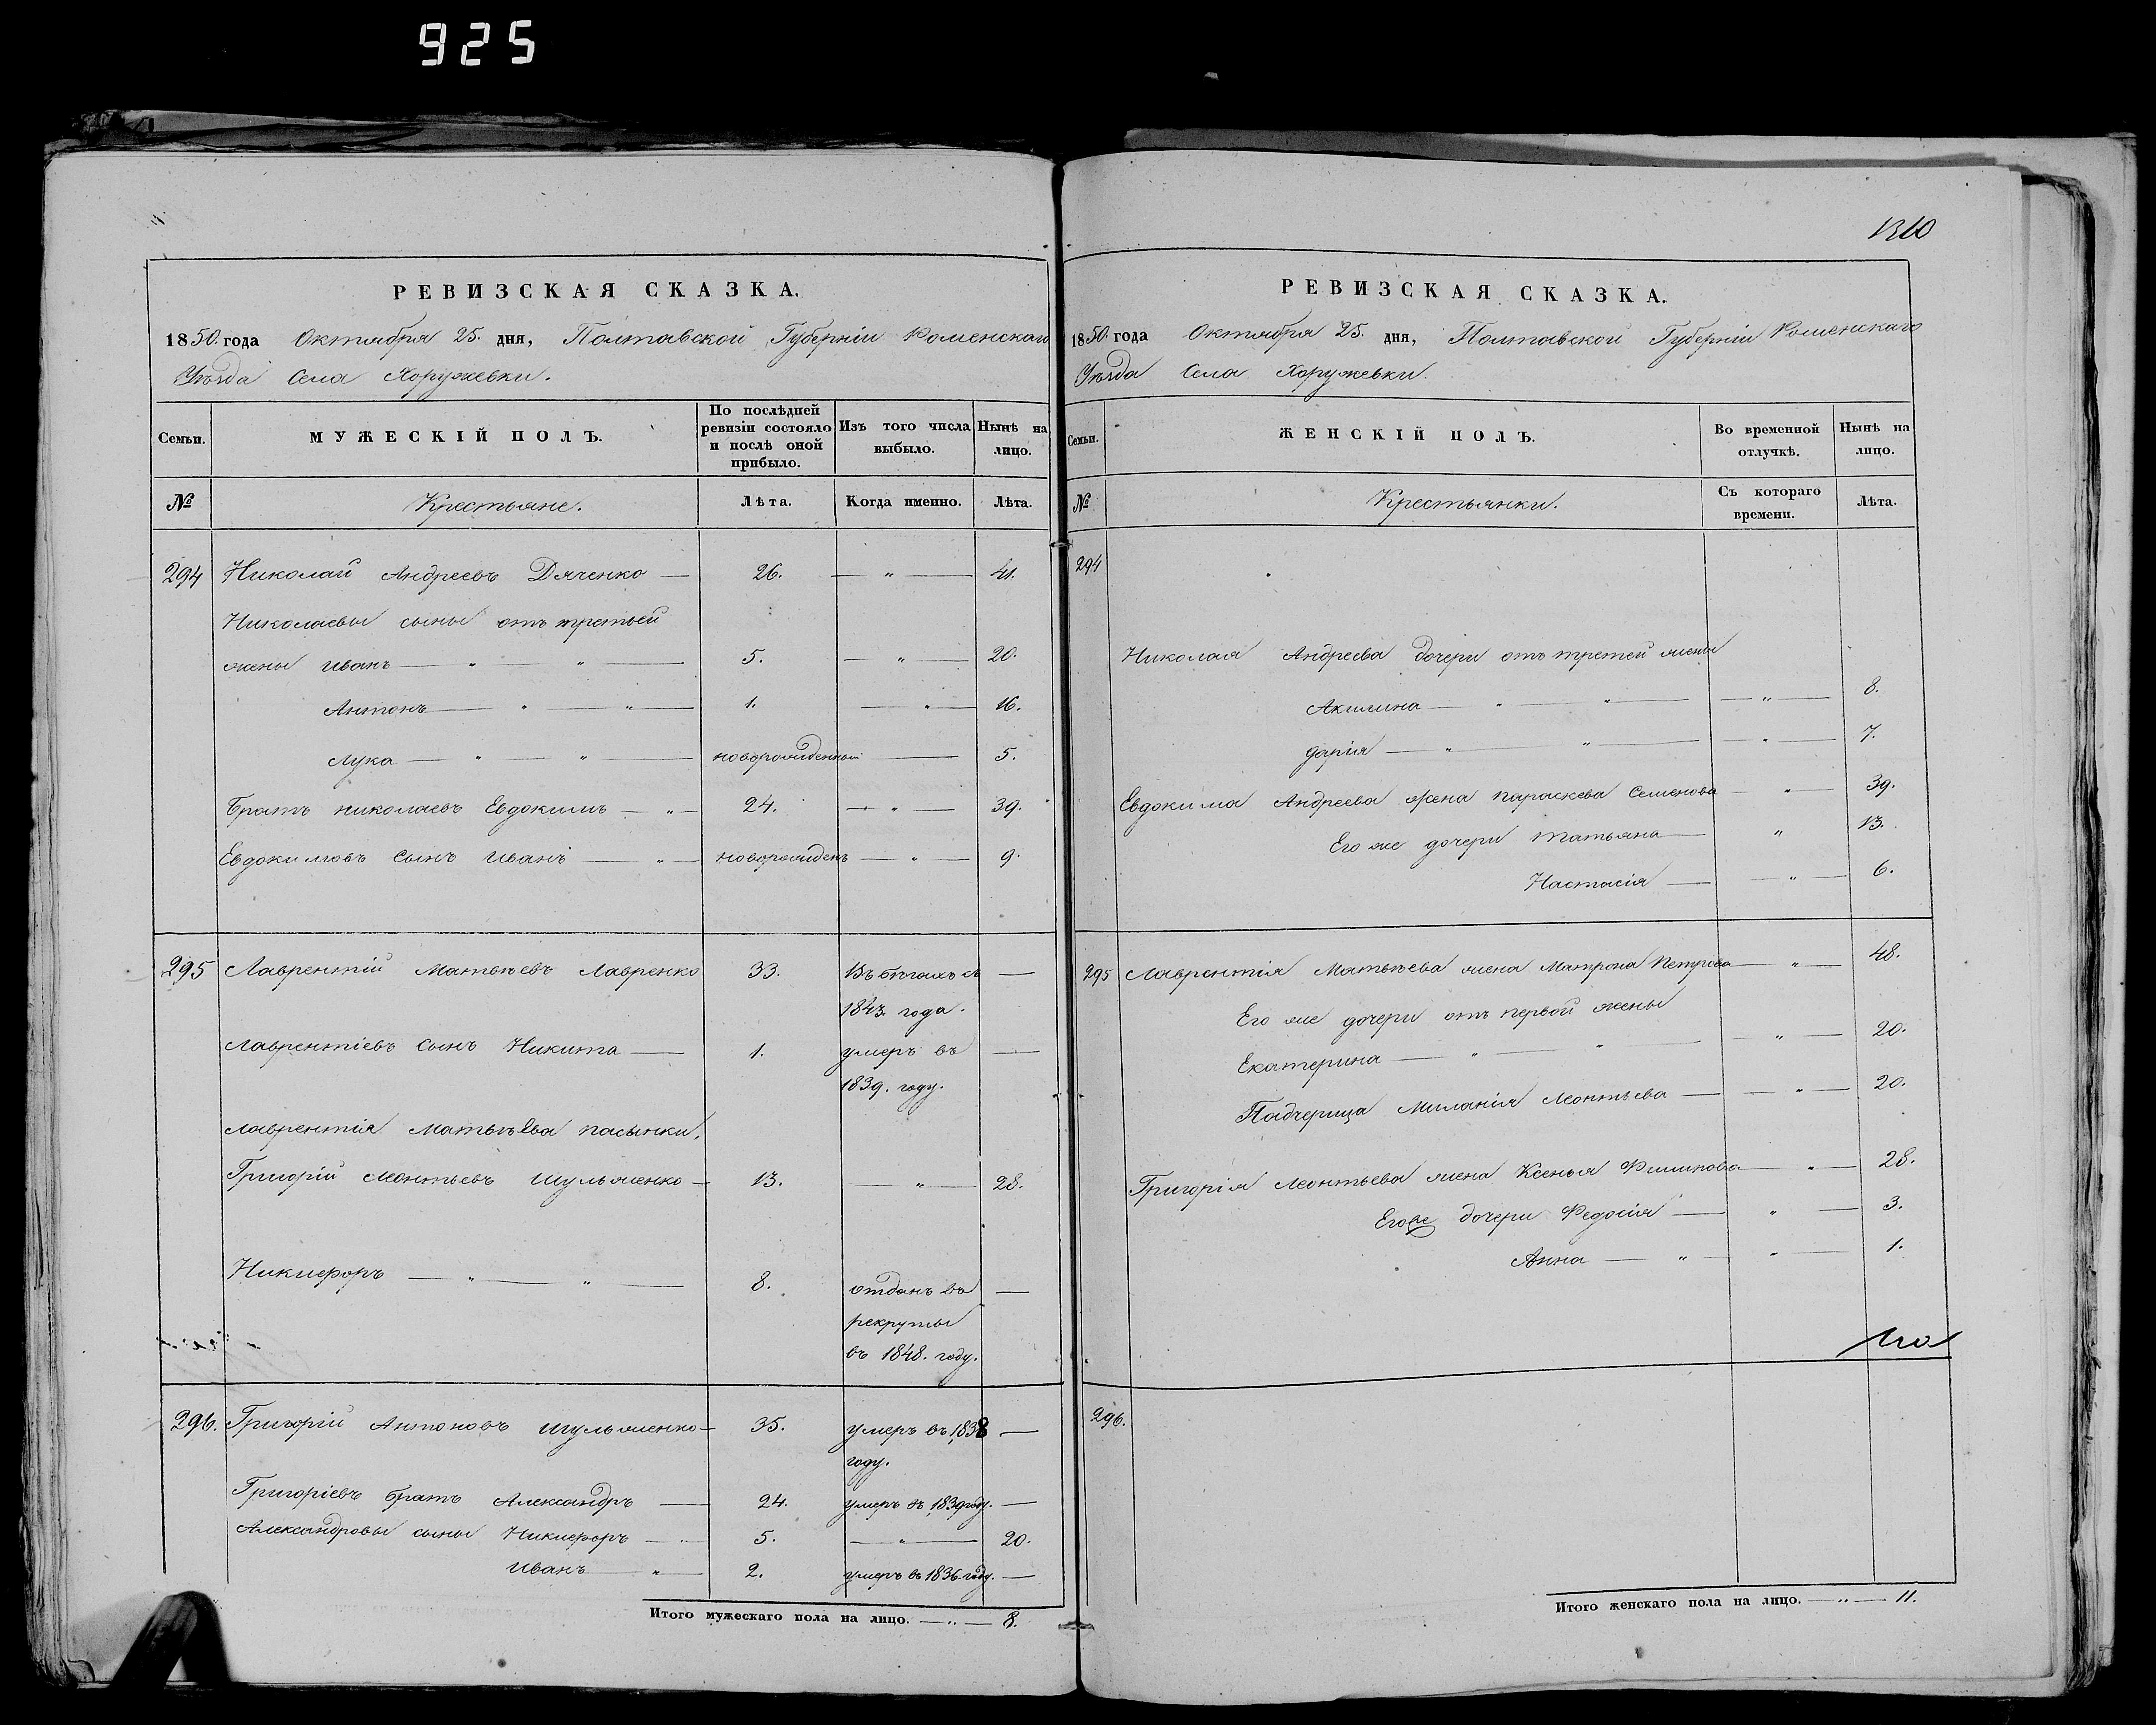 925
1310
РЕВИЗСКАЯ СКАЗКА.
1850. года Октября 25. дня, Полтавской Губерніи Роменскаго
Уѣзда Села Хоружевки.
Семьи.
МУЖЕСКІЙ ПОЛЪ.
По послѣдней ревизіи состояло и послѣ оной прибыло.
Изъ того числа выбыло.
Нынѣ на лицо.
№ Крестьяне. Лѣта. Когда именно. Лѣта.
294 Николай Андреевъ Дяченко — 26. — " — 41.
Николаевы сыны отъ третьей
жены Иванъ — " — " — 5. — " — 20.
Антонъ — " — " — 1. — " — 16.
Лука — " — " — новорожденный — 5.
Братъ николаевъ Евдокимъ — " — 24. — " — 39.
Евдокимовъ Сынъ Иванъ — " — новорожденъ — " — 9.
295 Лаврентій Матвѣевъ Лавренко 33. Въ бѣгахъ съ —
1843. года.
Лаврентіевъ Сынъ Никита — 1. умеръ въ —
1839. году.
Лаврентія Матвѣева пасынки.
Григорій Леонтьевъ Шульженко — 13. — " — 28.
Никифоръ — " — " — 8. отданъ въ —
рекруты
въ 1848. году.
296. Григорій Антоновъ Шульженко — 35. умеръ въ 1838 —
году.
Григоріевъ братъ Александръ — 24. умеръ въ 1839 году. —
Александровы сыны Никифоръ — " 5. — " — 20.
Иванъ — " — 2. умеръ въ 1836. году. —
Итого мужескаго пола на лицо. — " — 8.
РЕВИЗСКАЯ СКАЗКА.
1850. года Октября 25. дня, Полтавской Губерніи Роменскаго
Уѣзда Села Хоружевки.
Семьи.
ЖЕНСКІЙ ПОЛЪ.
Во временной отлучкѣ.
Нынѣ на лицо.
№ Крестьянки. Съ котораго времени. Лѣта.
294
Николая Андреева дочери отъ третей жены
Акилина — " — " — — " — 8.
дарія — " — " — — " — 7.
Евдокима Андреева жена параскева Семенова — " — 39.
Его же дочери татьяна — " 13.
Настасія — — " — 6.
295 Лаврентія Матвѣева жена Матрона Петрова — " — 48.
Его же дочери отъ первой жены
Екатерина — " — " — — " — 20.
Падчерица Миланія Леонтьева — — " — 20.
Григорія Леонтьева жена Ксенья Филипова — " — 28.
Его же дочери Федосія — " — 3.
Анна — " — " — 1.
296.
Итого женскаго пола на лицо. — " — 11.